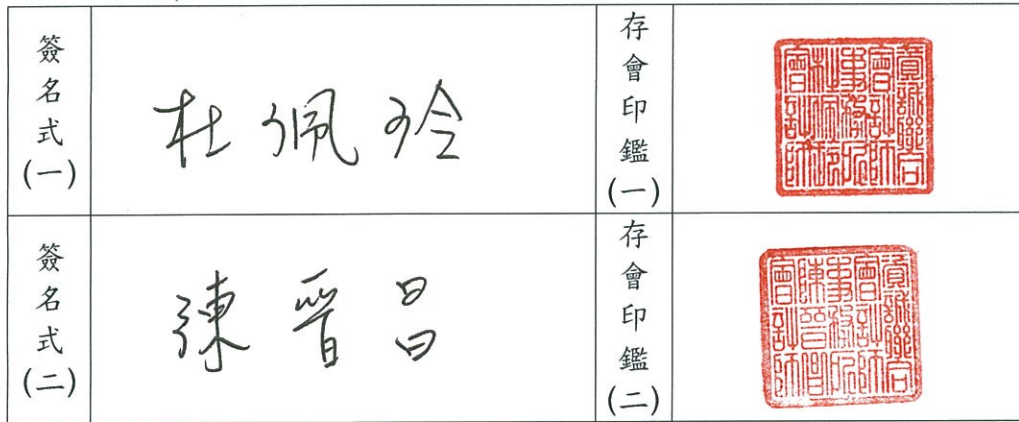 簽名式(一)
杜佩玲
存會印鑑(一)
資誠聯合
會計師
事務所
杜佩玲
會計師
簽名式(二)
陳晉昌
存會印鑑(二)
資誠聯合
會計師
事務所
陳晉昌
會計師